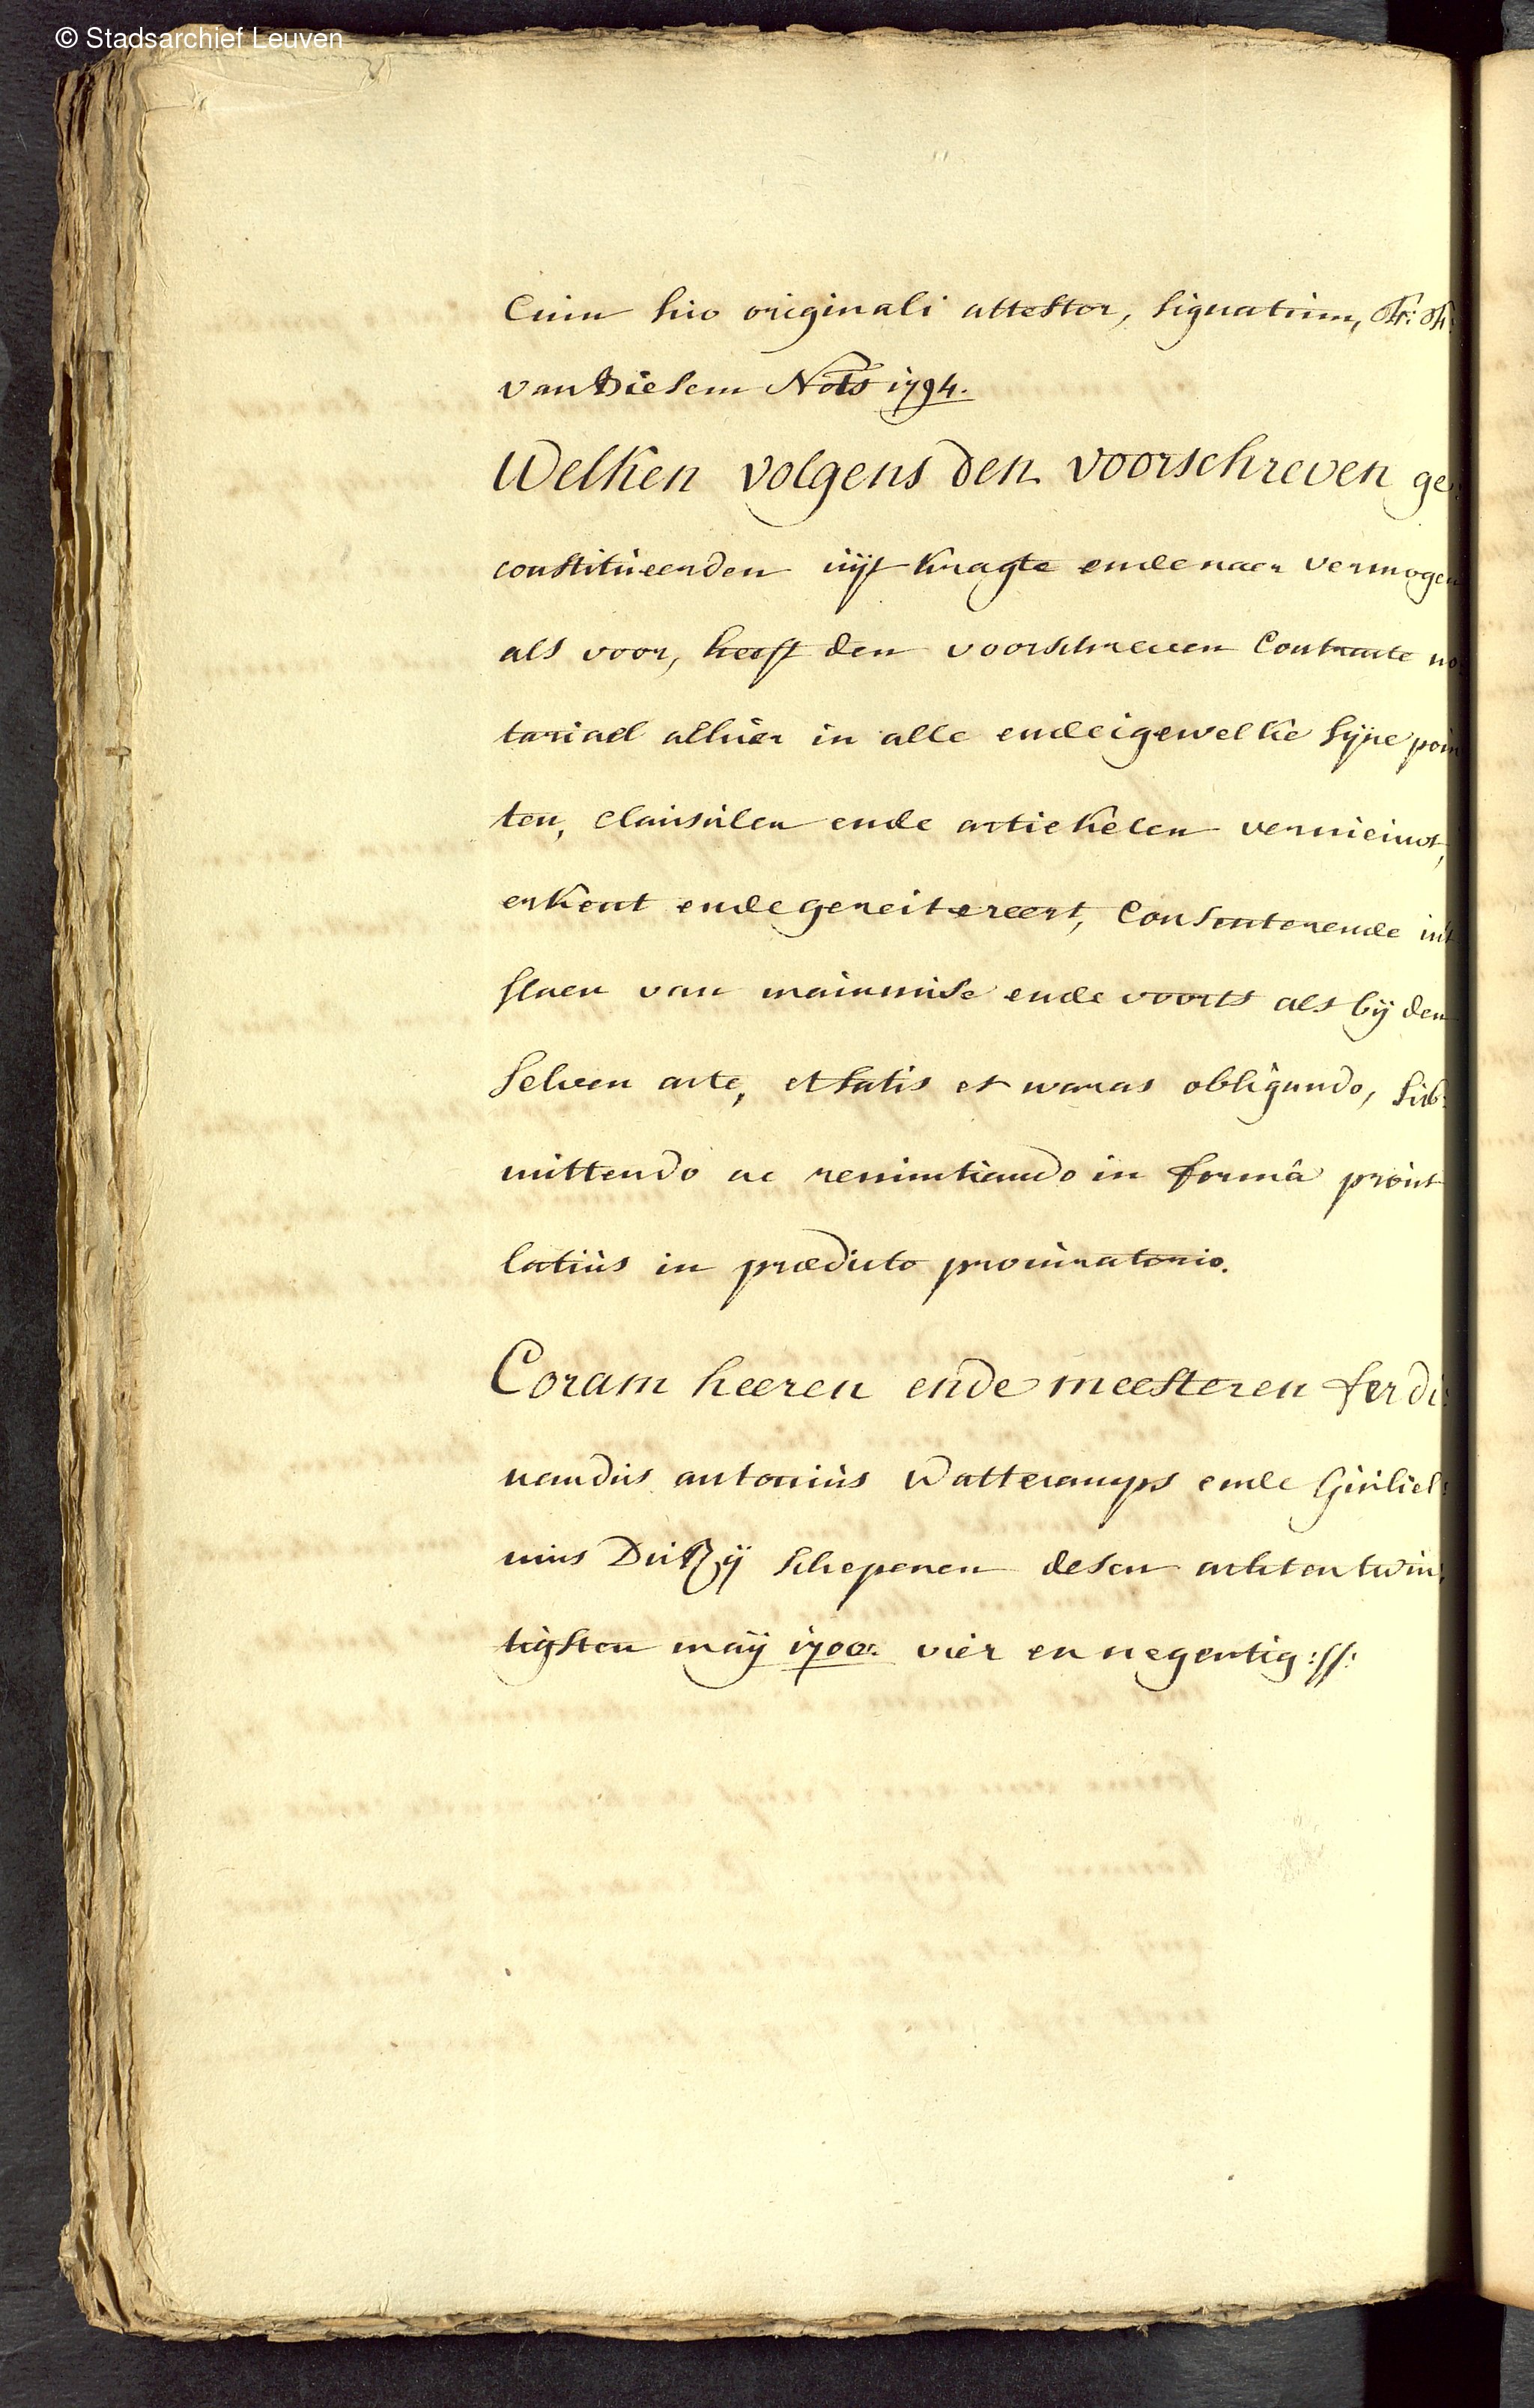 © Stadsarchief Leuven
Cum suo originali attestor, signatum,
van Diesem Nots 1794.
Welken volgens den voorschreven ge:
constitueerden uijt kragte ende naer vermogen
als voor, heeft den voorschreven Contracte no:
tariael alhier in alle ende igewelke sijne poin
ten, clausulen ende artiekelen vernieuwt,
erkent ende gereitereert, Consenterende int
slaen van mainmise ende voorts als bij den
selven acte, et satis et waras obligando, sub:
mittendo ac renuntiando in formâ prout
latiùs in prædicto procuratorio.
Coram heeren ende meesteren ferdi:
nandus antonius Watteramps ende Guiliel:
mus Durij schepenen desen achtentwin:
tigsten maij 1700: vier en negentig :ss: